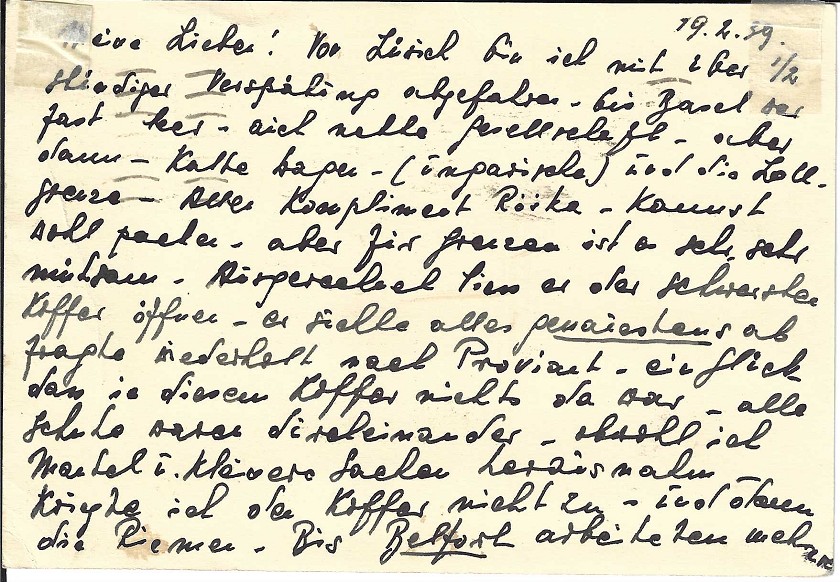 19.2.59.
Meine Lieben! Von Zürich bin ich mit über 1/2
stündiger Verspätung abgefahren - bis Basel war
fast leer - auch nette Gesellschaft - aber
dann - Kalte Wagen - (ungarische) und die Zoll-
grenze - Allen Kompliment Röska - Kannst
wohl packen - aber für Grenzen ist es sehr, sehr
mühsam - Ausgerechnet liess er den schwersten
Koffer öffnen - er stellte alles genauestens ab
fragte wiederholt nach Proviant - ein Glück
dass in diesem Koffer nichts da war - alle
Schuhe waren durcheinander - obwohl ich
Mantel u. kleinere Sachen herausnahm
kriegte ich den Koffer nicht zu - und dann
die Riemen - Bis Belfort arbeiteten mehr